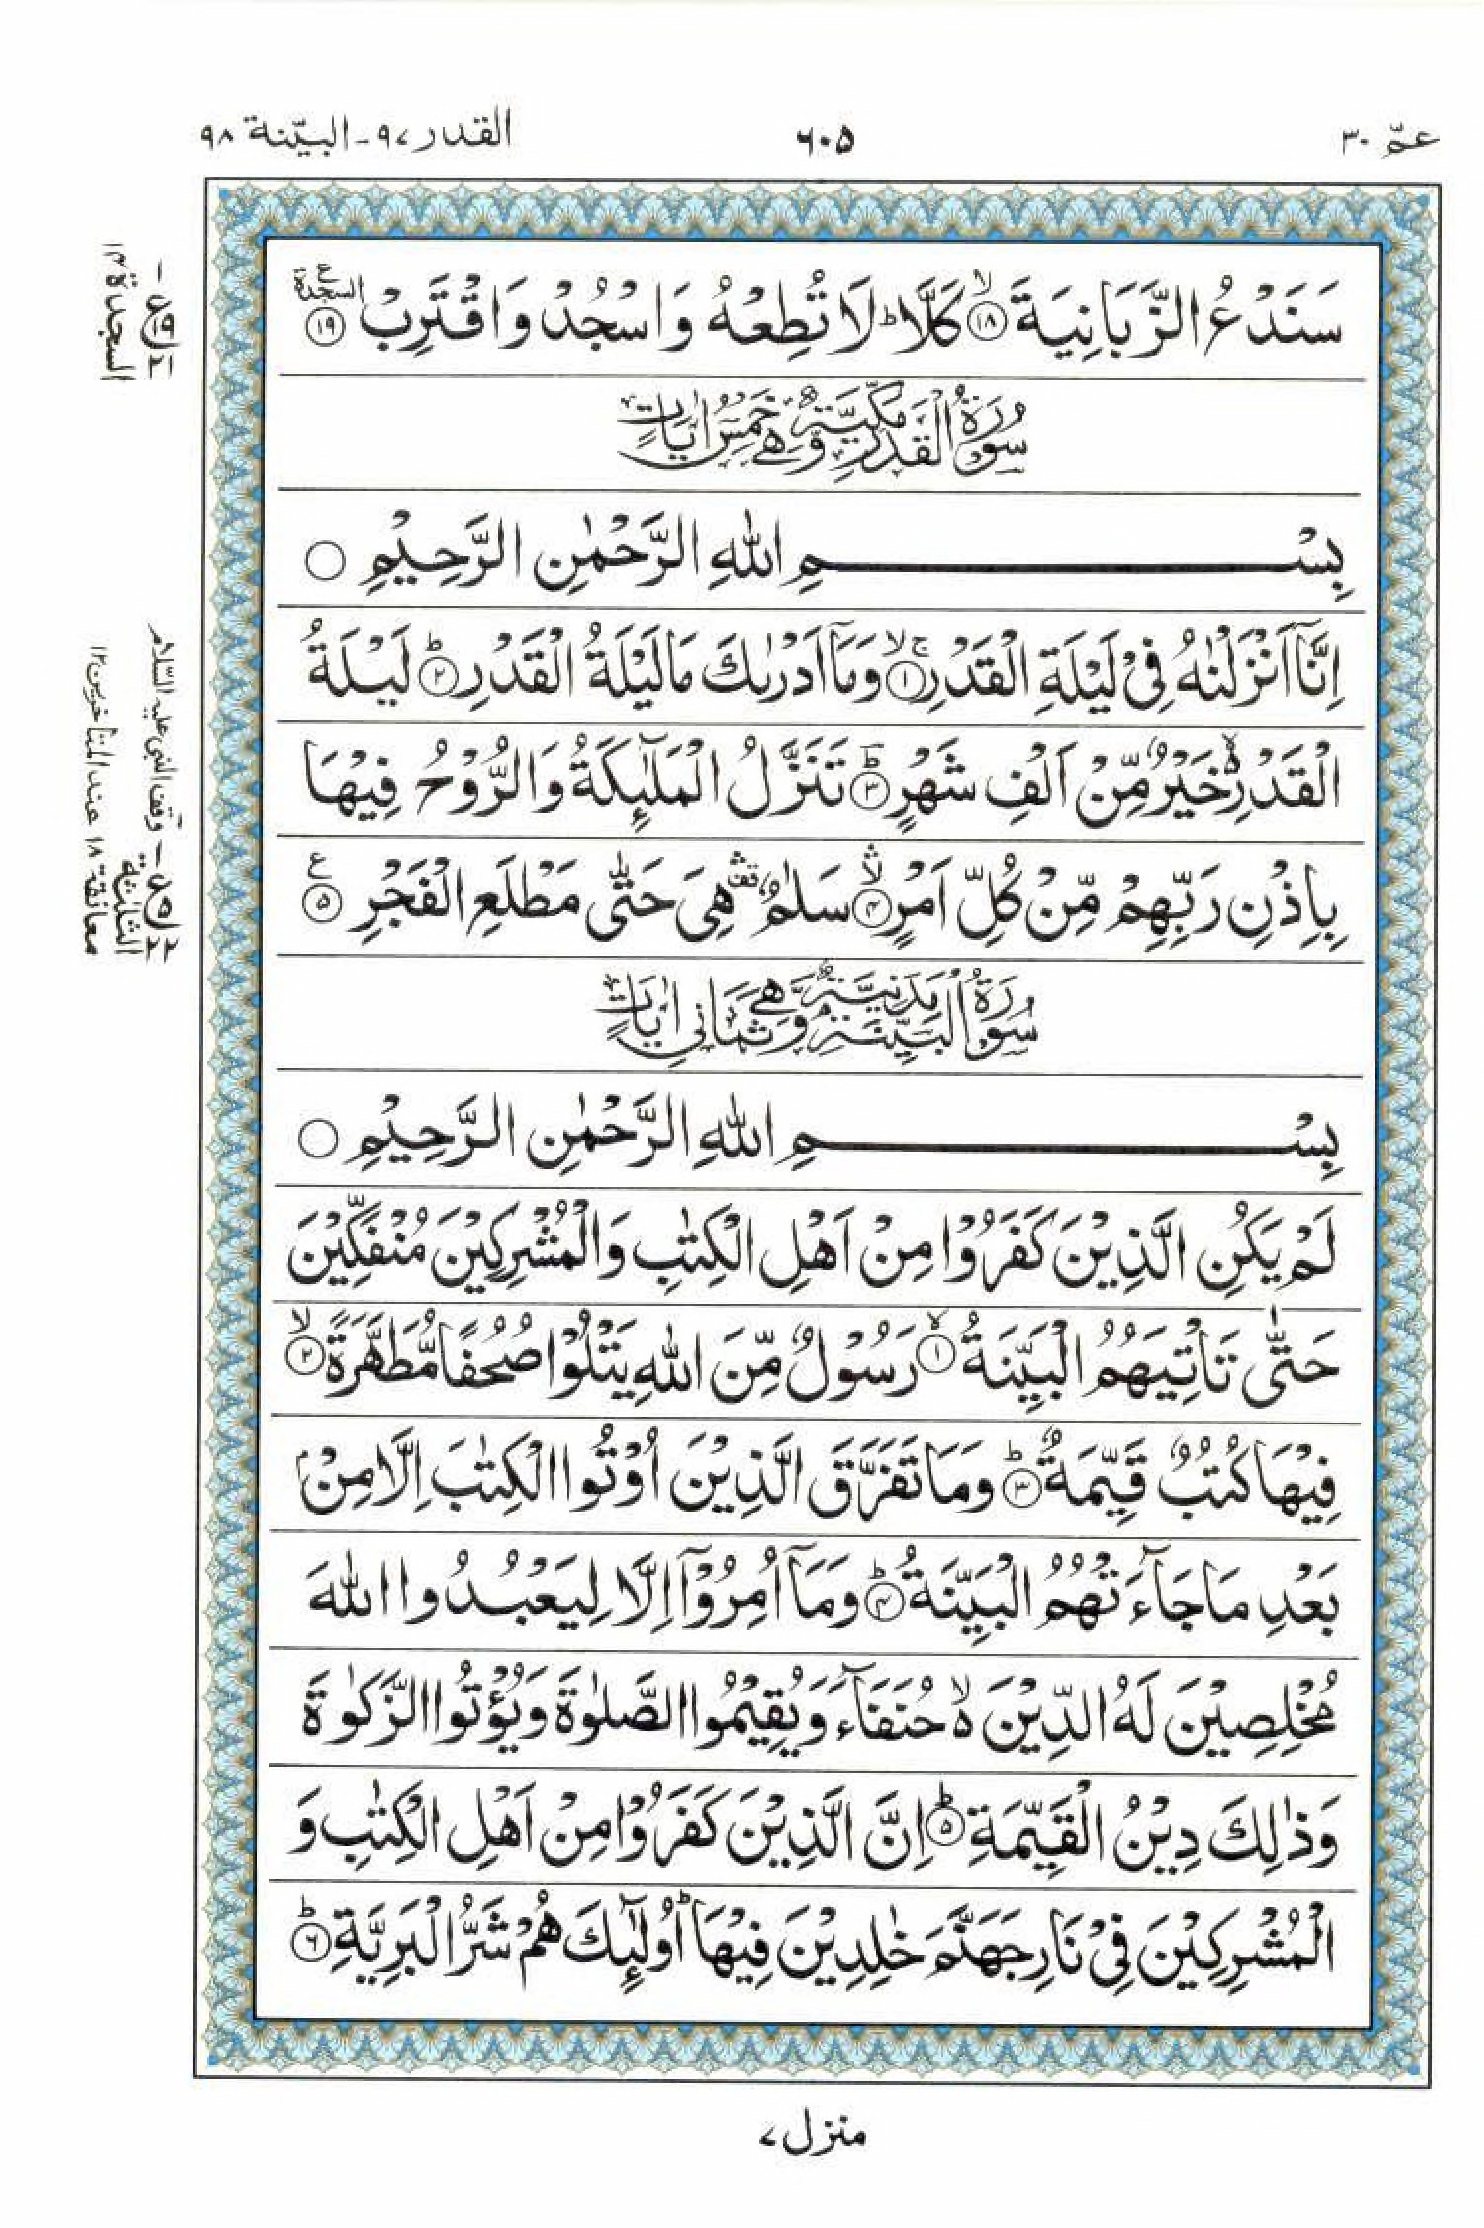 عمّ ٣٠
٦٠٥
القدر ٩٧ - البيّنة ٩٨
سَنَدْعُ الزَّبَانِيَةَ ﴿١٨﴾ۙ كَلَّا ؕ لَا تُطِعْهُ وَاسْجُدْ وَاقْتَرِبْ ﴿١٩﴾ السجدة ع
سُوْرَةُ الْقَدْرِ مَكِّيَّةٌ وَّهِيَ خَمْسُ اٰيَاتٍ
بِسْمِ اللّٰهِ الرَّحْمٰنِ الرَّحِيْمِ
اِنَّاۤ اَنْزَلْنٰهُ فِيْ لَيْلَةِ الْقَدْرِ ﴿١﴾ۚۙ وَمَاۤ اَدْرٰىكَ مَا لَيْلَةُ الْقَدْرِ ﴿٢﴾ؕ لَيْلَةُ
الْقَدْرِ ۙ۬ خَيْرٌ مِّنْ اَلْفِ شَهْرٍ ﴿٣﴾ؕ تَنَزَّلُ الْمَلٰٓئِكَةُ وَالرُّوْحُ فِيْهَا
بِاِذْنِ رَبِّهِمْ مِّنْ كُلِّ اَمْرٍ ﴿٤﴾ۙۛ سَلٰمٌ ۛ قف هِيَ حَتّٰى مَطْلَعِ الْفَجْرِ ﴿٥﴾ ع
سُوْرَةُ الْبَيِّنَةِ مَدَنِيَّةٌ وَّهِيَ ثَمَانِيْ اٰيَاتٍ
بِسْمِ اللّٰهِ الرَّحْمٰنِ الرَّحِيْمِ
لَمْ يَكُنِ الَّذِيْنَ كَفَرُوْا مِنْ اَهْلِ الْكِتٰبِ وَالْمُشْرِكِيْنَ مُنْفَكِّيْنَ
حَتّٰى تَاْتِيَهُمُ الْبَيِّنَةُ ﴿١﴾ۙ رَسُوْلٌ مِّنَ اللّٰهِ يَتْلُوْا صُحُفًا مُّطَهَّرَةً ﴿٢﴾ۙ
فِيْهَا كُتُبٌ قَيِّمَةٌ ﴿٣﴾ؕ وَمَا تَفَرَّقَ الَّذِيْنَ اُوْتُوا الْكِتٰبَ اِلَّا مِنْۢ
بَعْدِ مَا جَآءَتْهُمُ الْبَيِّنَةُ ﴿٤﴾ؕ وَمَاۤ اُمِرُوْۤا اِلَّا لِيَعْبُدُوا اللّٰهَ
مُخْلِصِيْنَ لَهُ الدِّيْنَ ۙ۬ حُنَفَآءَ وَيُقِيْمُوا الصَّلٰوةَ وَيُؤْتُوا الزَّكٰوةَ
وَذٰلِكَ دِيْنُ الْقَيِّمَةِ ﴿٥﴾ؕ اِنَّ الَّذِيْنَ كَفَرُوْا مِنْ اَهْلِ الْكِتٰبِ وَ
الْمُشْرِكِيْنَ فِيْ نَارِ جَهَنَّمَ خٰلِدِيْنَ فِيْهَا ؕ اُولٰٓئِكَ هُمْ شَرُّ الْبَرِيَّةِ ﴿٦﴾ؕ
السجدة ١٤
وقف النبي عليه السّلام
الثلثة
معانقة ١٨ عند المتأخرين ١٢
منزل ٧